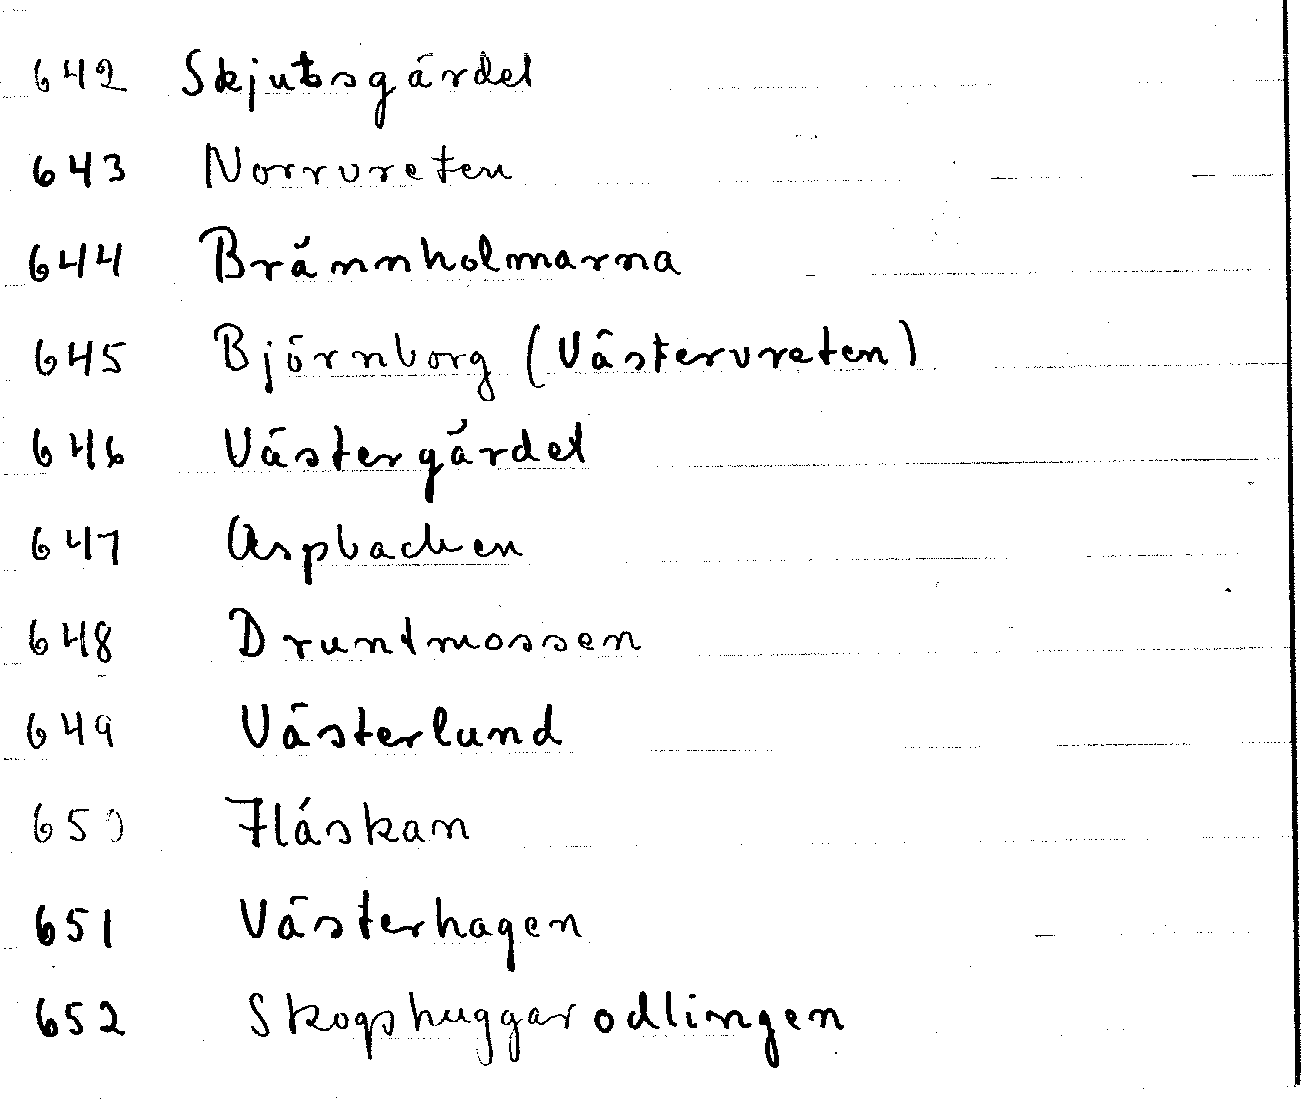 642 Skjutsgärdet
643 Norrvreten
644 Brännholmarna
645 Björnborg (Västervreten)
646 Västergärdet
647 Aspbacken
648 Druntmossen
649 Västerlund
650 Fläskan
651 Västerhagen
652 Skogshuggarodlingen